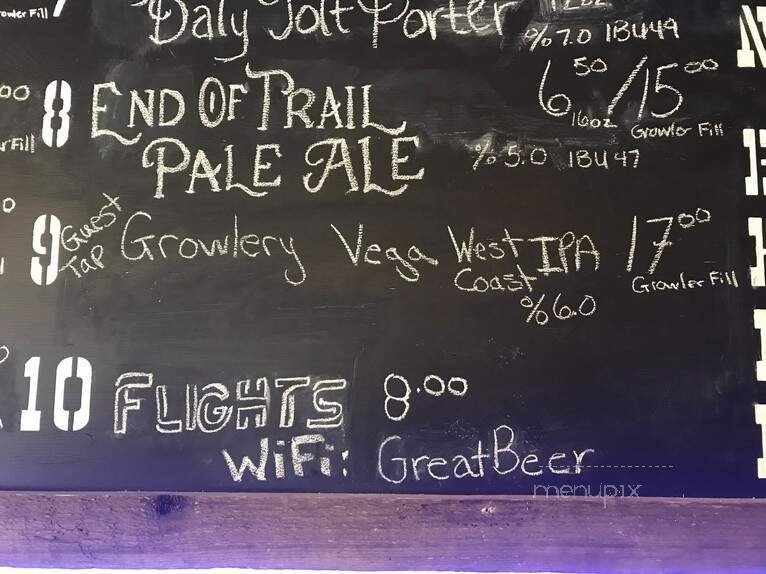 Growler Fill
Daly Jolt Porter 12oz
% 7.0 IBU 49
8 END OF TRAIL 6.50 16oz / 15.00
PALE ALE Growler Fill
% 5.0 IBU 47
9 Guest Tap Growlery Vega West Coast IPA 17.00
Growler Fill
% 6.0
10 FLIGHTS 8.00
WiFi: GreatBeer
menupix